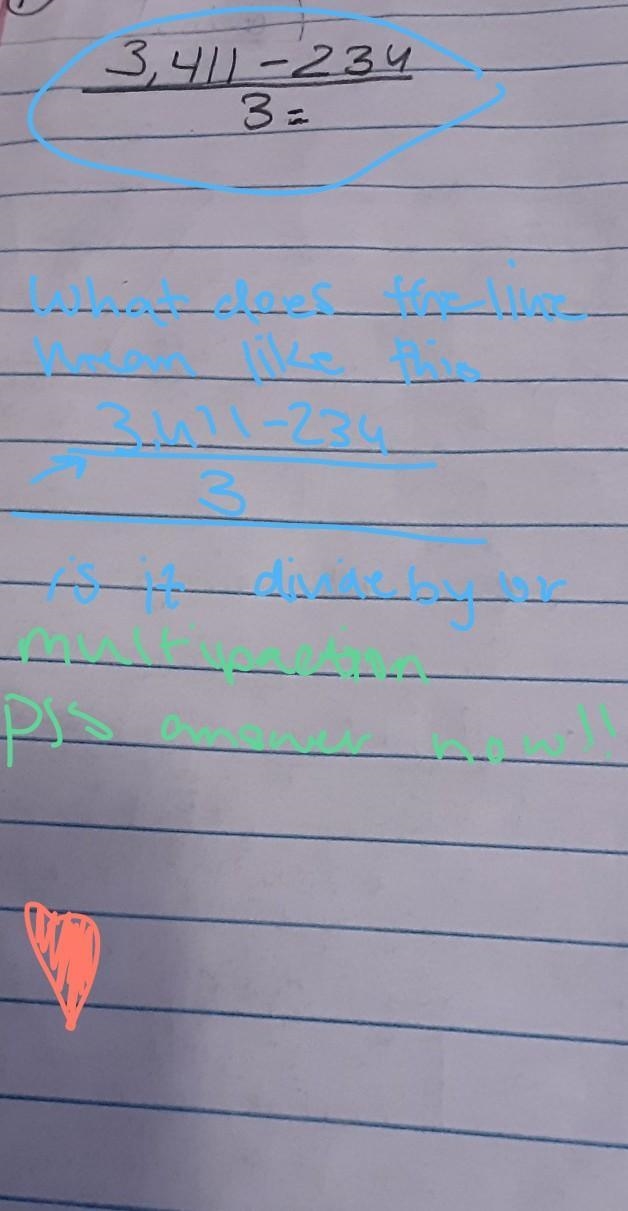 3,411-234
3=
What does the line
mean like this
3,411-234
3
is it divide by or
multipaction
Pls answer now!!